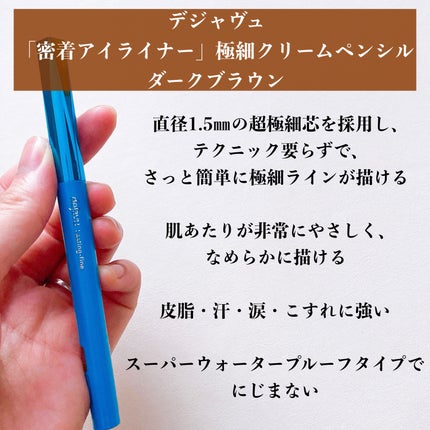 デジャヴュ
「密着アイライナー」極細クリームペンシル
ダークブラウン
直径1.5㎜の超極細芯を採用し、
テクニック要らずで、
さっと簡単に極細ラインが描ける
肌あたりが非常にやさしく、
なめらかに描ける
皮脂・汗・涙・こすれに強い
スーパーウォータープルーフタイプで
にじまない